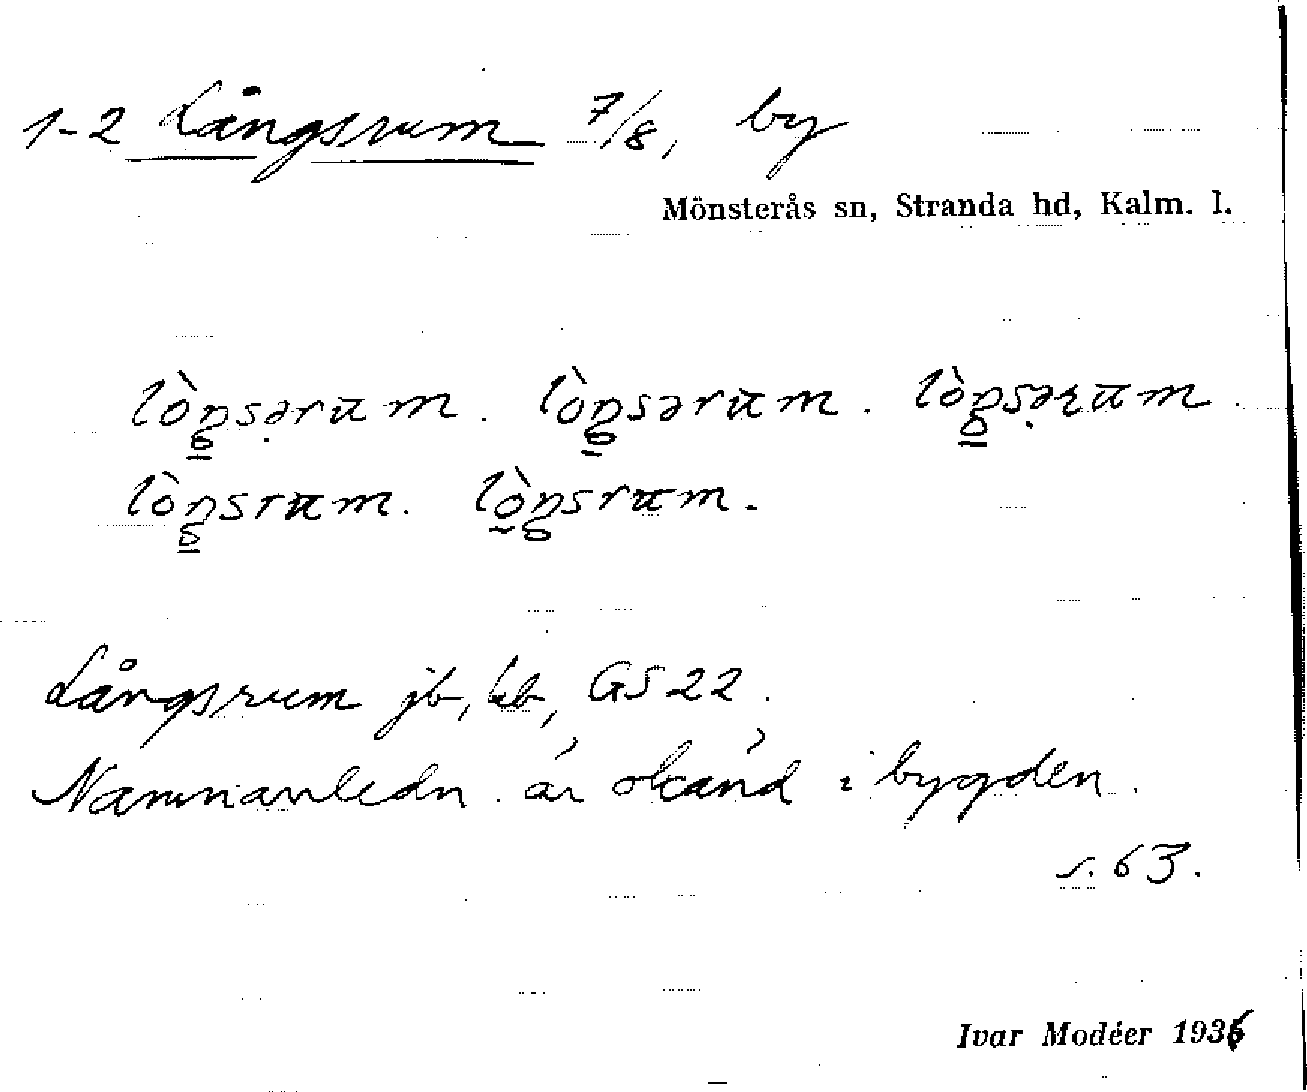 1-2 Långsrum 7/8, by
Mönsterås sn, Stranda hd, Kalm. l.
lòŋsərum. lòŋsərum. lòŋsərum.
lòŋsrum. lòŋsrum.
Långsrum jb, kb, GS 22.
Namnanledn. är okänd i bygden.
s. 63.
Ivar Modéer 1936